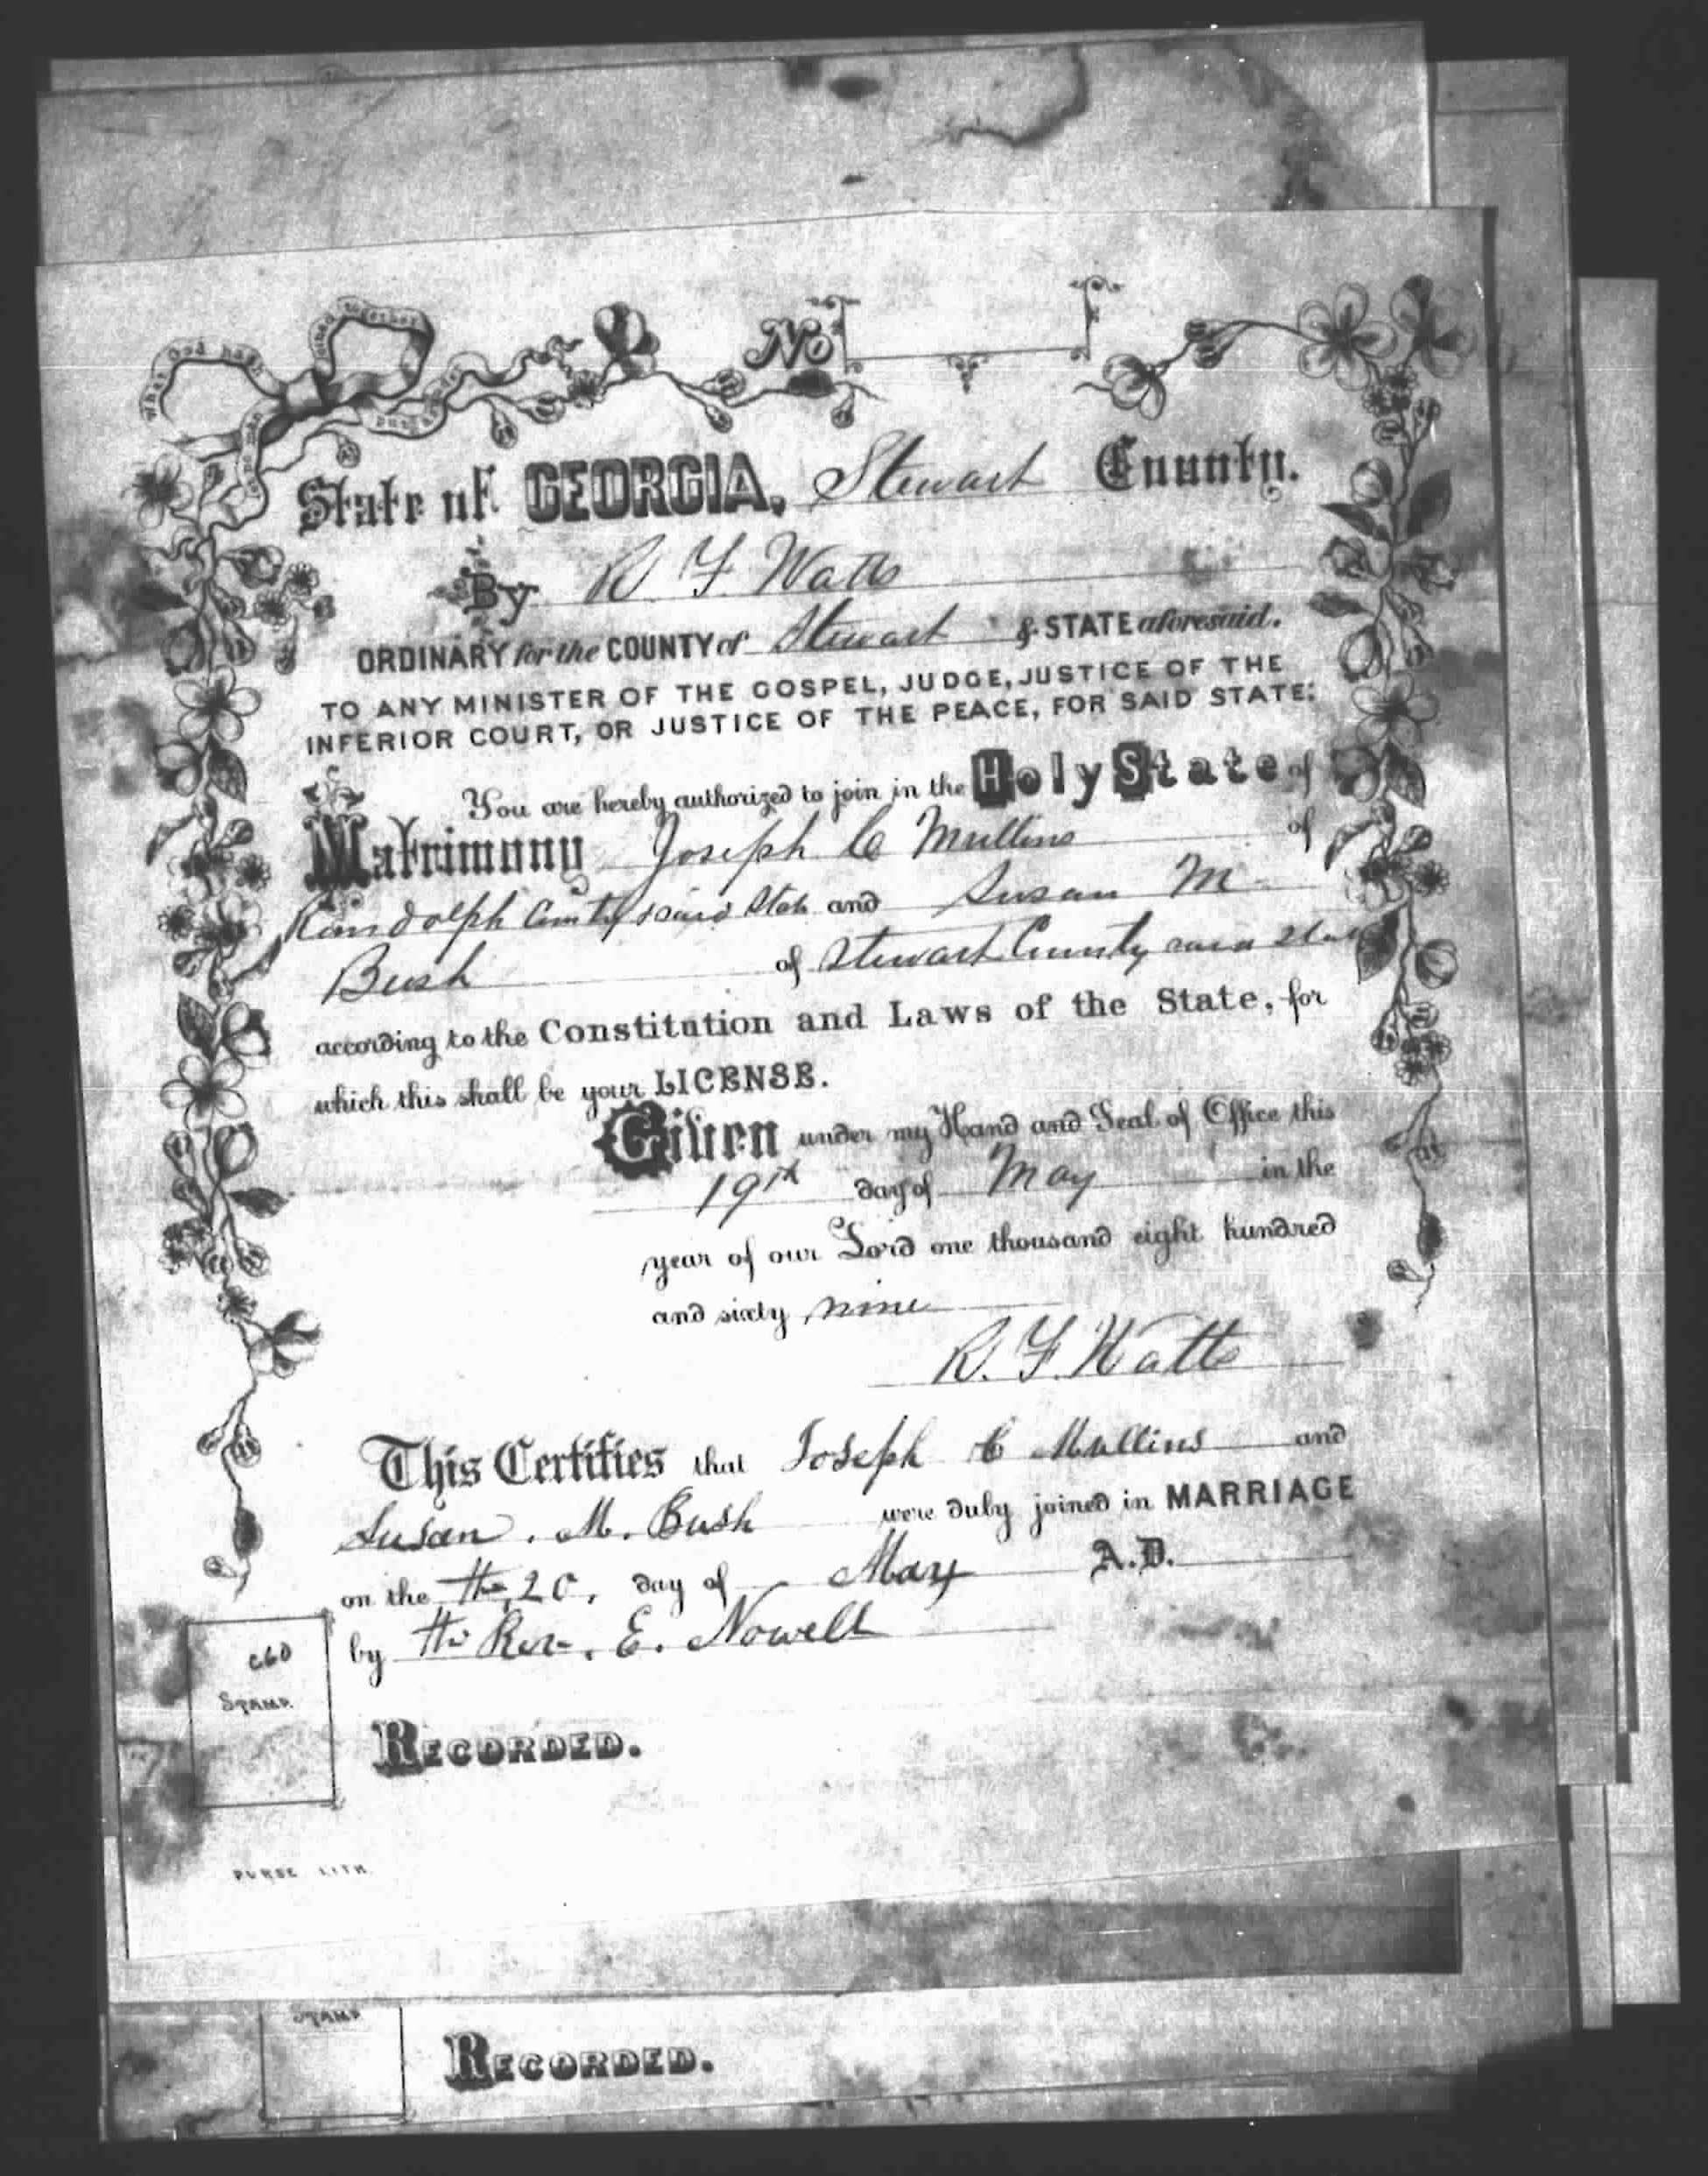 What God hath joined together
let no man put asunder
No
State of GEORGIA, Stewart County.
By R F. Watts
ORDINARY for the COUNTY of Stewart & STATE aforesaid.
TO ANY MINISTER OF THE GOSPEL, JUDGE, JUSTICE OF THE
INFERIOR COURT, OR JUSTICE OF THE PEACE, FOR SAID STATE:
You are hereby authorized to join in the Holy State of
Matrimony Joseph C Mullins of
Randolph County said State and Susan M
Bush of Stewart County said State
according to the Constitution and Laws of the State, for
which this shall be your LICENSE.
Given under my Hand and Seal of Office this
19th day of May in the
year of our Lord one thousand eight hundred
and sixty nine
R. F. Watts
This Certifies that Joseph C Mullins and
Susan. M. Bush were duly joined in MARRIAGE
on the the 20, day of May A.D.
by the Rev. E. Nowell
c60
STAMP.
RECORDED.
PURSE LITH.
STAMP
RECORDED.